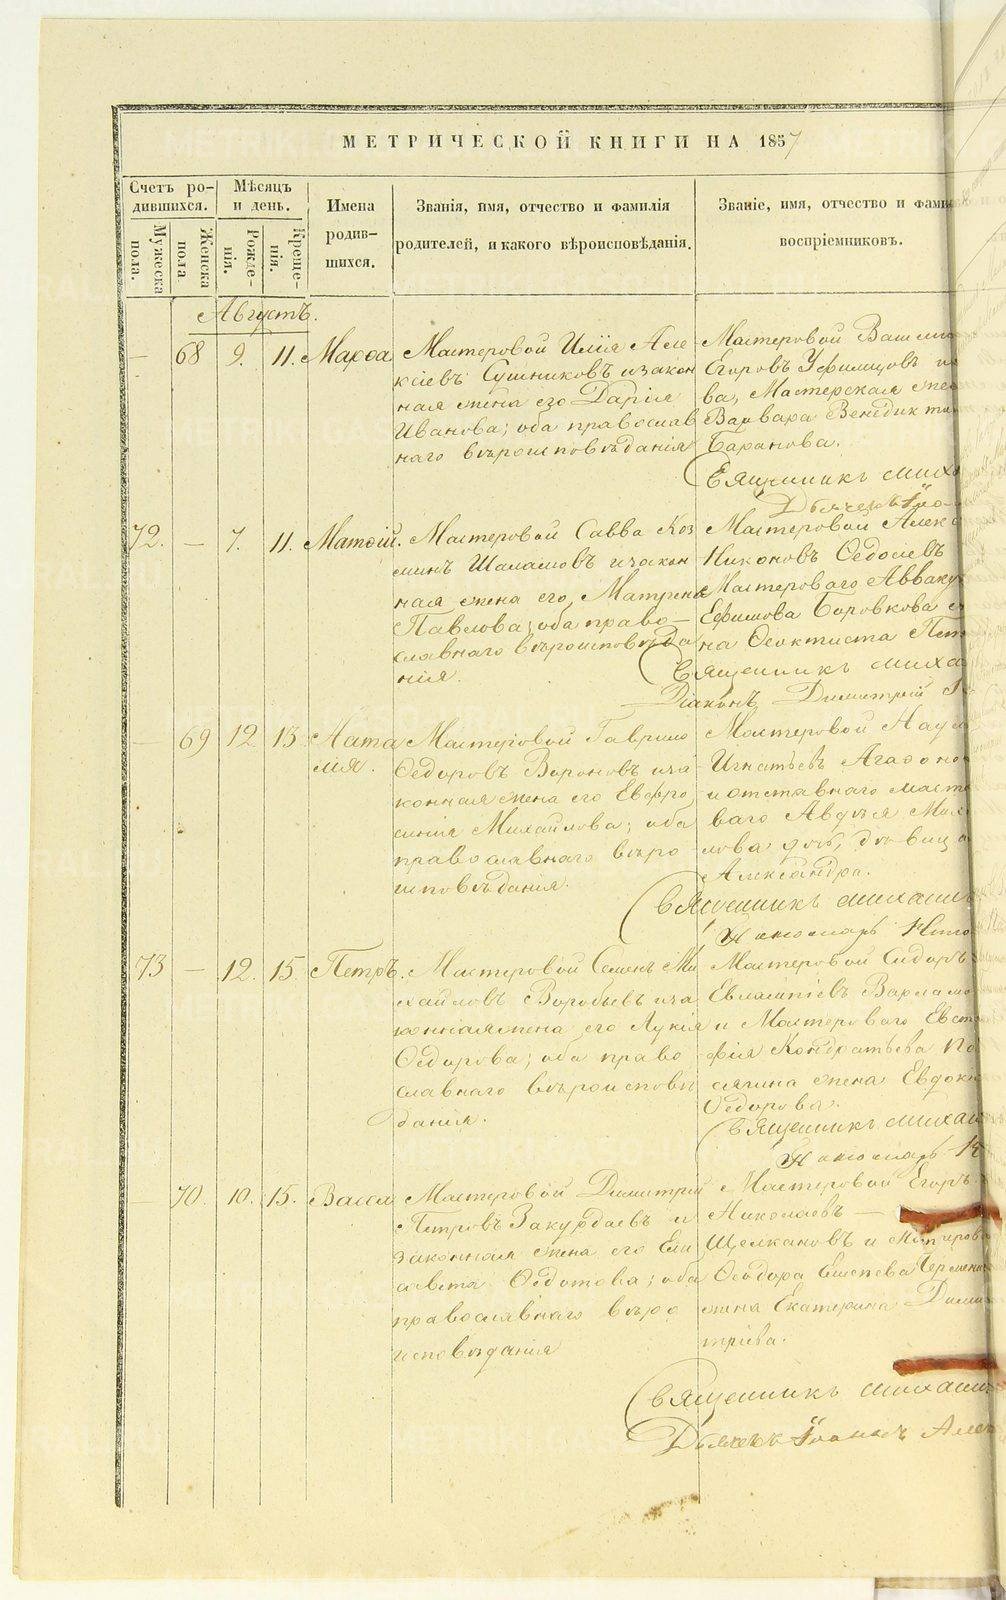 МЕТРИЧЕСКОЙ КНИГИ НА 1857
Счетъ ро-
дившихся.
Мужеска
пола.
Женска
пола
Мѣсяцъ
и день.
Рожде-
нія.
Креще-
нія.
Имена
родив-
шихся.
Званія, имя, отчество и фамилія
родителей, и какого вѣроисповѣданія.
Званіе, имя, отчество и фами
воспріемниковъ.
Августъ.
— 68 9. 11. Марѳа
Мастеровой Илія Але
ксіевъ Сушниковъ и закон
ная жена его Дарія
Иванова; оба православ
наго вѣроисповѣданія
Мастеровой Васили
Егоровъ
ва, Мастерская
Варвара Венедикто
Баранова.
Священникъ Миха
72. — 7. 11. Матѳій.
Мастеровой Савва Коз
минъ Шалашовъ и закон
ная жена его, Матрена
Павлова; оба право—
славнаго вѣроисповѣда
нія.
Мастеровой Алекс
Никоновъ Ѳедосіевъ
Мастероваго Авваку
Ефимова Боровкова
на Ѳеоктиста Пет
Священникъ Миха
Діаконъ Димитрій
— 69 12 13 Ната
лія.
Мастеровой Гаврило
Ѳедоровъ Вороновъ и за
конная жена его Евфро
синія Михайлова; оба
православнаго вѣро
исповѣданія.
Мастеровой Наум
Игнатьевъ Агаѳоно
и отставнаго масте
ваго Авдѣя Миха
лова дочь, дѣвица
Александра.
Священникъ Михаилъ
Пономарь
73 — 12. 15. Петръ.
Мастеровой Семенъ Ми
хайловъ Воробьевъ и за
конная жена его Лукія
Ѳедорова; оба право
славнаго вѣроисповѣ
данія.
Мастеровой Сидоръ
Евлампіевъ Варламо
и Мастероваго Евста
фія Кондратьева По
лягина жена Евдокі
Ѳедорова.
Священникъ Михаи
Пономарь
— 70. 10. 15. Васса
Мастеровой Димитрій
Петровъ Закурдаевъ и
законная жена его Ели
савета Ѳедотова; оба
православнаго вѣро
исповѣданія
Мастеровой Егоръ
Николаевъ —
Щелкановъ и Мастерова
Ѳеодора
жена Екатерина Дими
тріева.
Священникъ Михаилъ
Дьячекъ Іоаннъ Алек